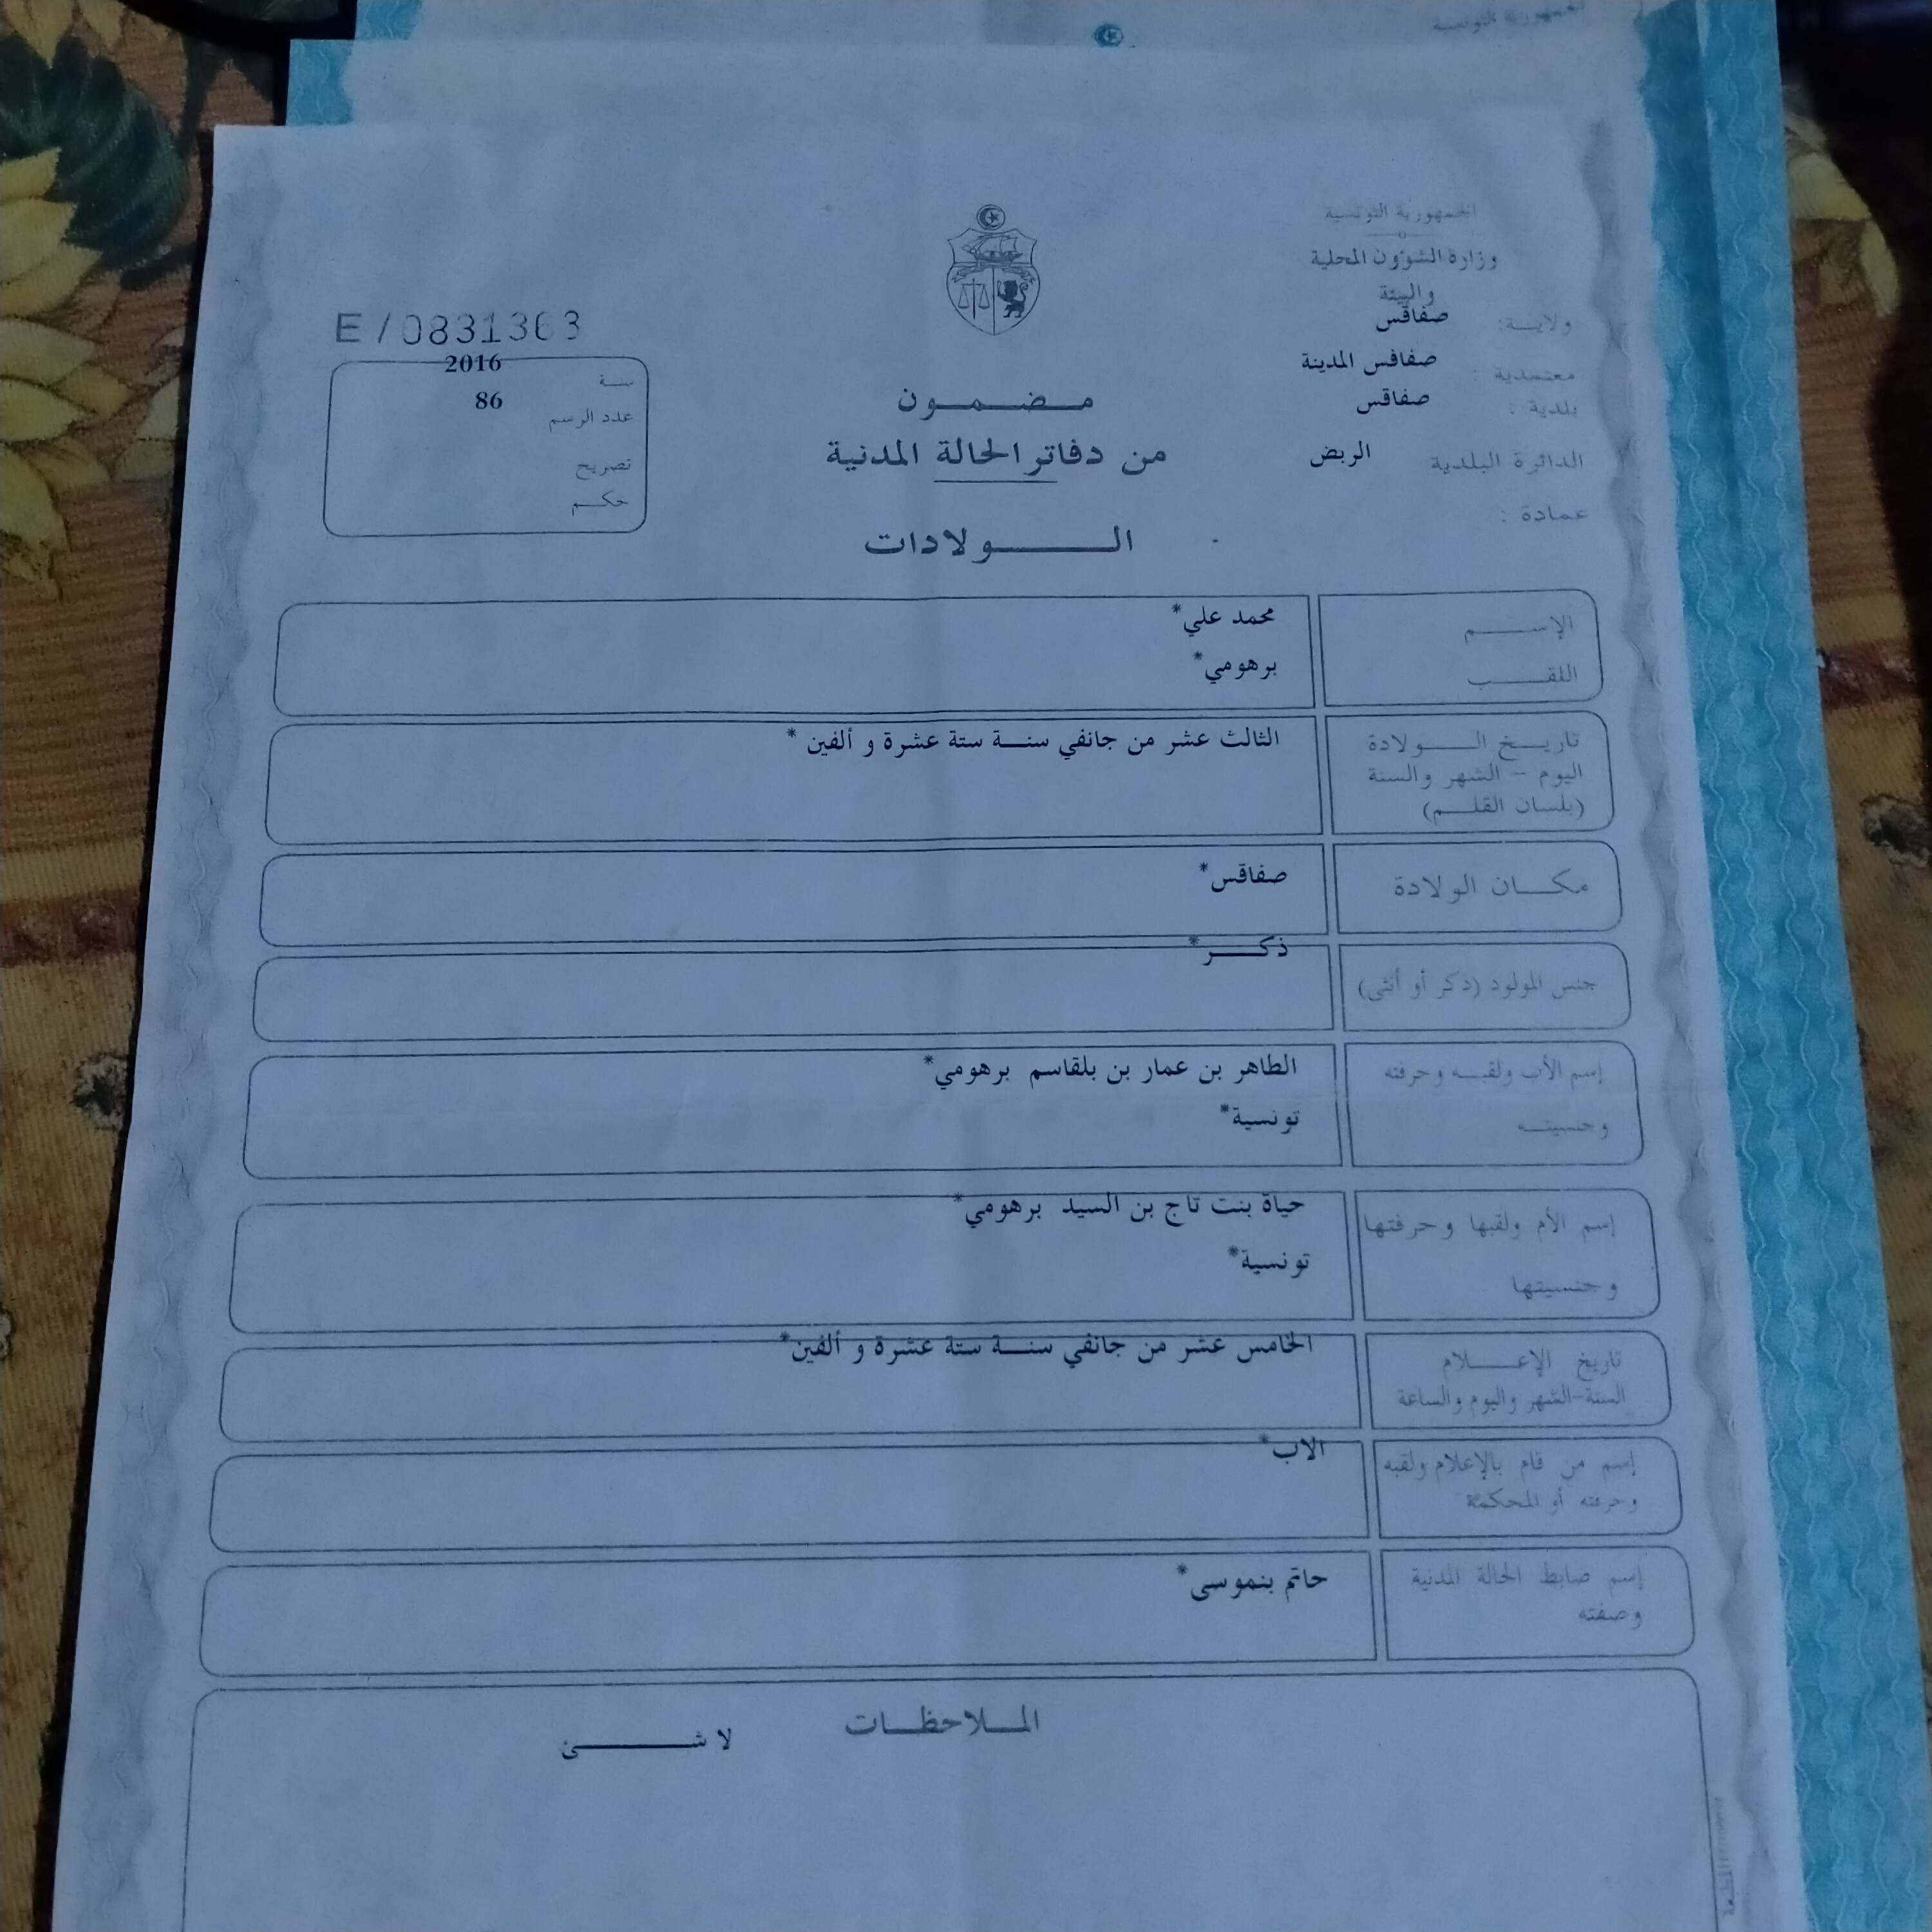 الجمهورية التونسية
الجمهورية التونسية
وزارة الشؤون المحلية
والبيئة
ولاية: صفاقس
معتمدية : صفاقس المدينة
بلدية : صفاقس
الدائرة البلدية الربض
عمادة :
E / 0831363
سنة 2016
عدد الرسم 86
تصريح
حكم
مضمون
من دفاتر الحالة المدنية
الولادات
الإسم محمد علي*
اللقب برهومي*
تاريخ الولادة الثالث عشر من جانفي سنة ستة عشرة و ألفين *
اليوم - الشهر والسنة
(بلسان القلم)
مكان الولادة صفاقس*
جنس المولود (ذكر أو أنثى) ذكر*
إسم الأب ولقبه وحرفته الطاهر بن عمار بن بلقاسم برهومي*
وجنسيته تونسية*
إسم الأم ولقبها وحرفتها حياة بنت تاج بن السيد برهومي*
وجنسيتها تونسية*
تاريخ الإعلام الخامس عشر من جانفي سنة ستة عشرة و ألفين*
السنة-الشهر واليوم والساعة
إسم من قام بالإعلام ولقبه الاب*
وحرفته أو المحكمة
إسم ضابط الحالة المدنية حاتم بنموسى*
وصفته
الملاحظات
لا شئ